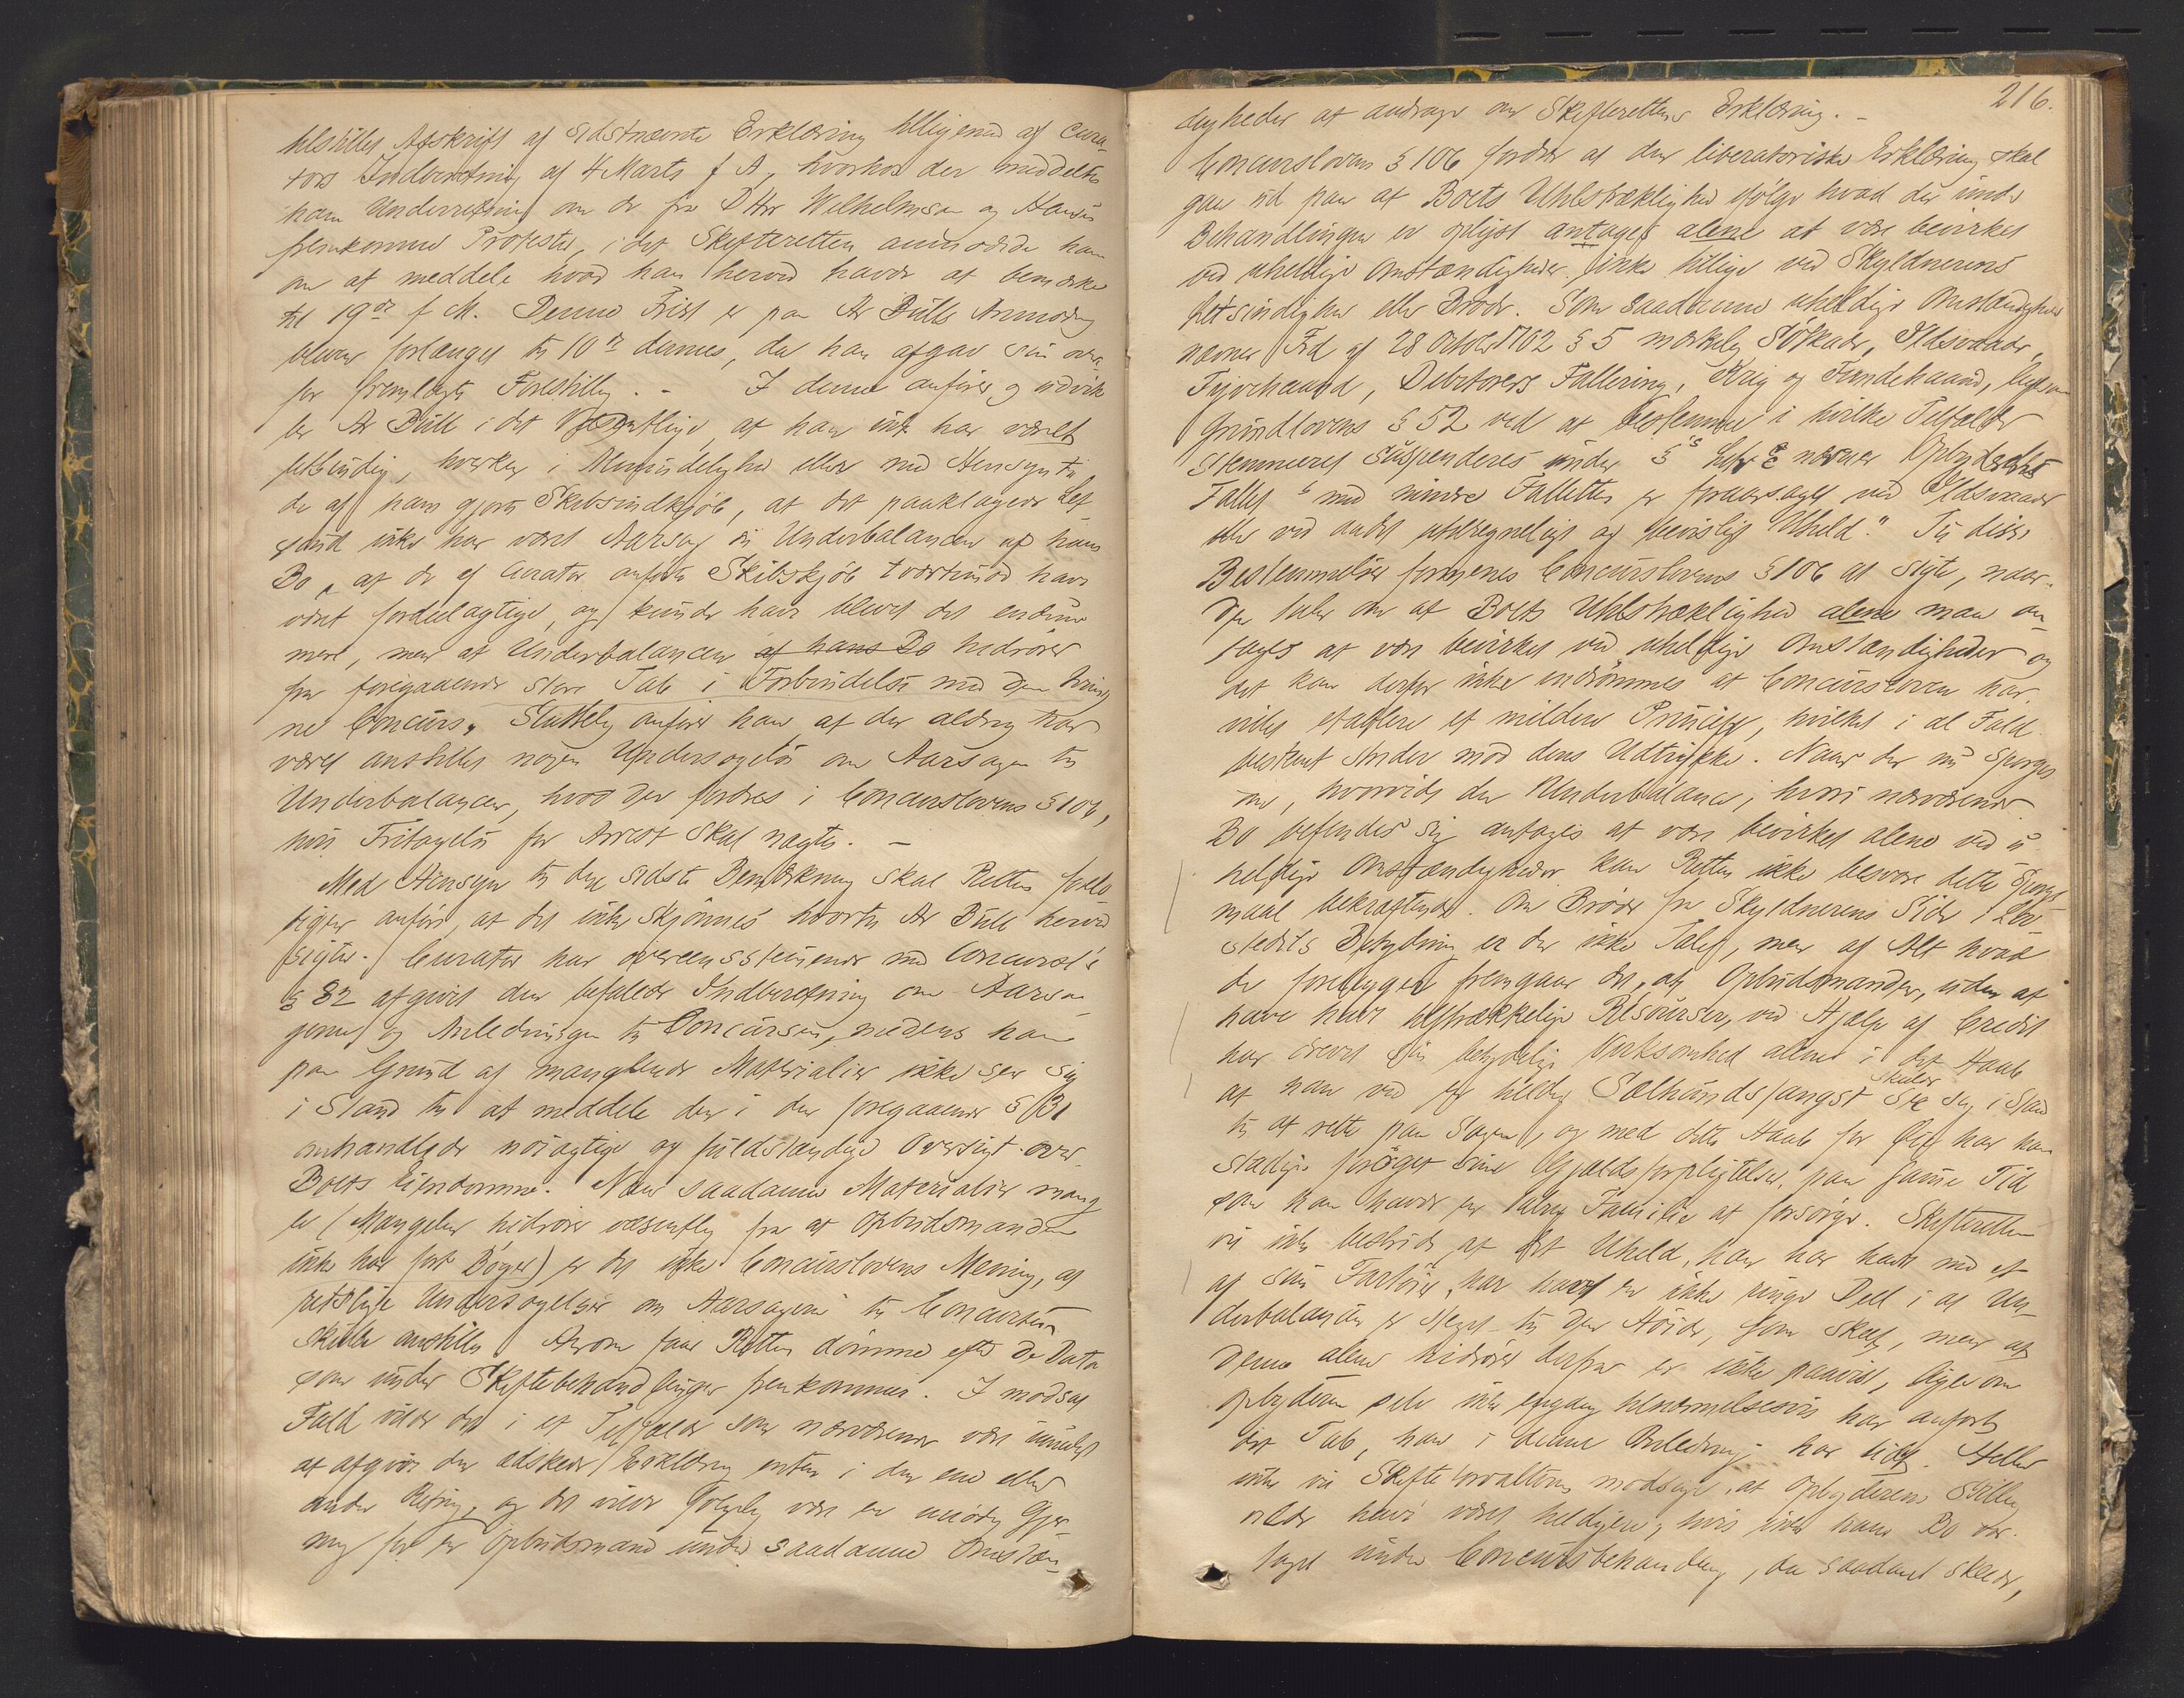 tilstilles Afskrift af sidstnævnte Erklæring tilligemed af Cura-
tors Indberetning af 4 Marts f A, hvorhos der meddeltes
ham Underretning om de fra DHrr Wilhelmsen og Hansen
fremkomne Protester, idet Skifteretten anmodede ham
om at meddele hvad han herved havde at bemærke
til 19de f M. Denne Frist er paa Hr Bulls Anmodning
bleven forlænget til 10de dennes, da han afgav sin oven-
for fremlagte Forestilling. - I denne anfører og udvik-
ler Hr Bull i det Væsentlige, at han ikke har været
letsindig, hverken i Almindelighed eller med Hensyn til
de af ham gjorte Skibsindkjøb, at det paaklagede Let-
sind ikke har været Aarsag til Underbalancen af hans
Bo, at de af Curator anførte Skibskjøb tvertimod have
været fordeelagtige, og kunde have blevet det endnu
mere, men at Underbalancen af hans Bo hidrører
fra foregaaende store Tab i Forbindelse med den
ne Concurs. Sluttelig anfører han at der aldrig har
været anstillet nogen Undersøgelse om Aarsagen til
Underbalancen, hvad der fordres i Concurslovens § 106,
hvis Fritagelse for Arrest skal nægtes. -
Med Hensyn til den sidste Bemærkning skal Retten forelø-
bigen anføre, at det ikke skjønnes hvortil Hr Bull herved
sigter. Curator har overeensstemmende med Concursl's
§ 82 afgivet den befalede Indberetning om Aarsa-
gerne og Anledningen til Concursen, medens han
paa Grund af manglende Materialier ikke ser sig
i Stand til at meddele den i den foregaaende § 81
omhandlede nøiagtige og fuldstændige Oversigt over
Boets Eiendomme. Naar saadanne Materialier mang-
le (Mangelen hidrører væsentlig fra at Opbudsmanden
ikke har ført Bøger) er det ikke Concurslovens Mening, at
retslige Undersøgelser om Aarsagerne til Concursen
skulle anstilles. Herom faar Retten dømme efter de Data
som under Skiftebehandlingen fremkommer. I modsat
Fald vilde det i et Tilfælde som nærværende være umuligt
at afgive den adskede Erklæring enten i den ene eller
anden Retning, og det vilde følgelig være en unødig Gjer-
ning for en Opbudsmand under saadanne Omstæn-
216.
digheder at andrage om Skifterettens Erklæring. -
Concurslovens § 106 fordrer at den liberatoriske Erklæring skal
gaa ud paa at Boets Utilstrækkelighed ifølge hvad der under
Behandlingen er oplyst antages alene at være bevirket
ved uheldige Omstændigheder, ikke tillige ved Skyldnerens
Letsindighed eller Brøde. Som saadanne uheldige Omstændigheder
nævner Frd af 28 Octbr 1762 § 5 nærkelig Søskade, Ildsvaade,
Tyvehaand, Debitorers Fallering, Krig og Fiendehaand, ligesom
Grundlovens § 52 ved at bestemme i hvilke Tilfælde
Stemmeret suspenderes under § Litr c nævner Opbud eller
Fallit "med mindre Fallitten er foraarsaget ved Ildsvaade
eller ved andet utilregneligt og bevisligt Uheld." Til disse
Bestemmelser formenes Concurslovens § 106 at sigte, naar
den taler om at Boets Utilstrækkelighed alene maa an-
tages at være bevirket ved uheldige Omstændigheder og
det kan derfor ikke indrømmes at Concursloven har
villet etablere et mildere Princip, hvilket i al Fald
bestemt strider mod dens Udtrykke. Naar der nu spørges
om, hvorvidt den Underbalance, hvori nærværende
Bo befindes sig antages at være bevirket alene ved u-
heldige Omstændigheder kan Retten ikke besvare dette Spørgs-
maal bekræftende. Om Brøde fra Skyldnerens Side i
stedets Betydning er der ikke Tale, men af Alt hvad
der foreligger fremgaar det, at Opbudsmanden, uden at
have havt tilstrækkelige Resourcer, ved Hjælp af Credit
har drevet sin betydelige Virksomhed alene i det Haab
at han ved en heldig Sælhundsfangst skulde se sig i Stand
til at rette paa Sagen, og med dette Haab for Øie har han
stadig forøget sine Gjældsforpligtelser, paa samme Tid
som han havde en talrig Familie at forsørge. Skifteretten
vil ikke bestride, at det Uheld, han har havt med et
af sine Fartøier, har havt en ikke ringe Deel i at Un-
derbalancen er steget til den Høide, som skeet, men at
denne alene hidrører derfra er ikke paavist, ligesom
Opbyderen selv ikke engang tilnærmelsesvis har anført
det Tab, han i denne Anledning har lidt. Heller
ikke vil Skifteforvalteren modsige, at Opbyderens Stilling
vilde have været heldigere, hvis ikke hans Bo var
taget under Concursbehandling, da saadant skede,